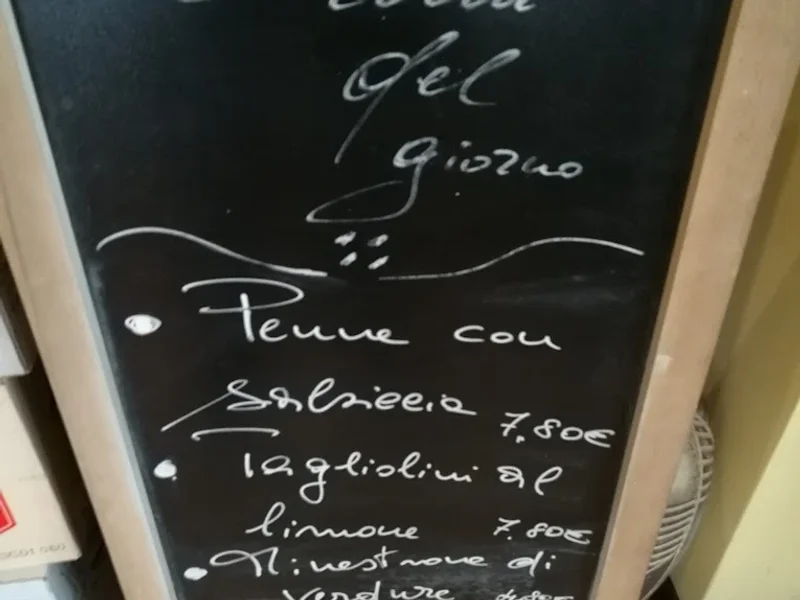 del
giorno
Penne con
Salsiccia 7,80€
Tagliolini al
limone 7,80€
Minestrone di
verdure